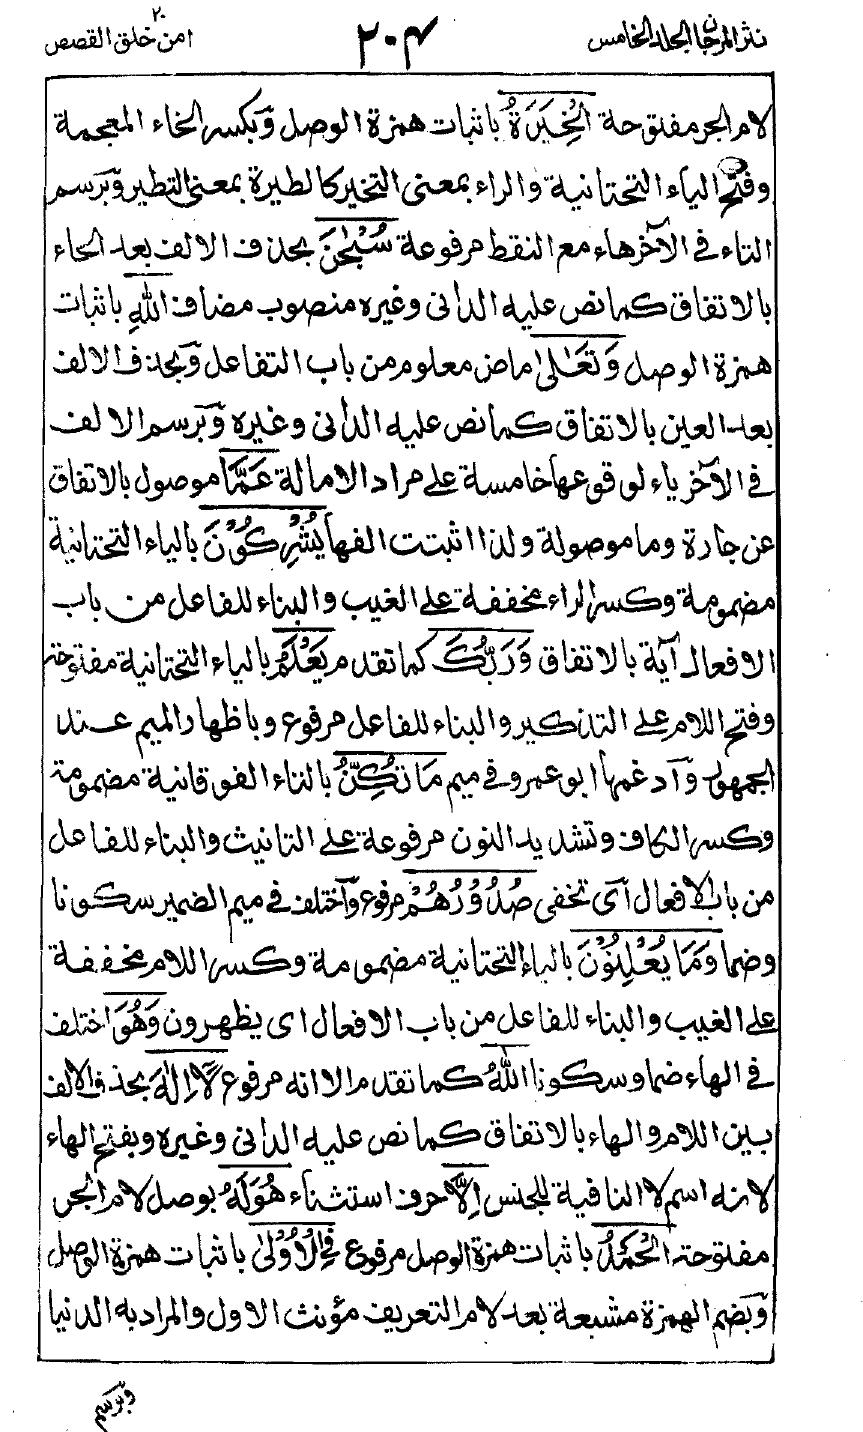 نثر المرجان الجلد الخامس
٢٠٤
٢٠
امن خلق القصص
لام الجر مفتوحة الْخِيَرَةُ باثبات همزة الوصل وبكسر الخاء المعجمة
وفتح الياء التحتانية والراء بمعنى التخير كالطيرة بمعنى التطير وبرسم
التاء فى الآخر هاء مع النقط مرفوعة سُبْحٰنَ بحذف الالف بعد الحاء
بالاتفاق كما نص عليه الدانى وغيره منصوب مضاف اللهِ باثبات
همزة الوصل وَتَعٰلىٰ ماض معلوم من باب التفاعل وبحذف الالف
بعد العين بالاتفاق كما نص عليه الدانى وغيره وبرسم الالف
فى الآخر ياء لوقوعها خامسة على مراد الامالة عَمَّا موصول بالاتفاق
عن جارة وما موصولة ولذا اثبتت الفها يُشْرِكُوْنَ بالياء التحتانية
مضمومة وكسر الراء مخففة على الغيب والبناء للفاعل من باب
الافعال آية بالاتفاق وَرَبُّكَ كما تقدم يَعْلَمُ بالياء التحتانية مفتوحة
وفتح اللام على التذكير والبناء للفاعل مرفوع وباظهار الميم عند
الجمهور وآدغمها ابو عمرو فى ميم مَا تُكِنُّ بالتاء الفوقانية مضمومة
وكسر الكاف وتشديد النون مرفوعة على التانيث والبناء للفاعل
من باب الافعال آى تخفى صُدُوْرُهُمْ مرفوع وآختلف فى ميم الضمير سكونا
وضما وَمَا يُعْلِنُوْنَ بالياء التحتانية مضمومة وكسر اللام مخففة
على الغيب والبناء للفاعل من باب الافعال اى يظهرون وَهُوَ اختلف
فى الهاء ضما وسكونا اللهُ كما تقدم الا انه مرفوع لَآ اِلٰهَ بحذف الالف
بين اللام والهاء بالاتفاق كما نص عليه الدانى وغيره وبفتح الهاء
لانه اسم لا النافية للجنس اِلَّا حرف استثناء هُوَ لَهُ بوصل لام الجر
مفتوحة الْحَمْدُ باثبات همزة الوصل مرفوع فِى الْاُوْلىٰ باثبات همزة الوصل
وبضم الهمزة مشبعة بعد لام التعريف مؤنث الاول والمراد به الدنيا
وبرسم